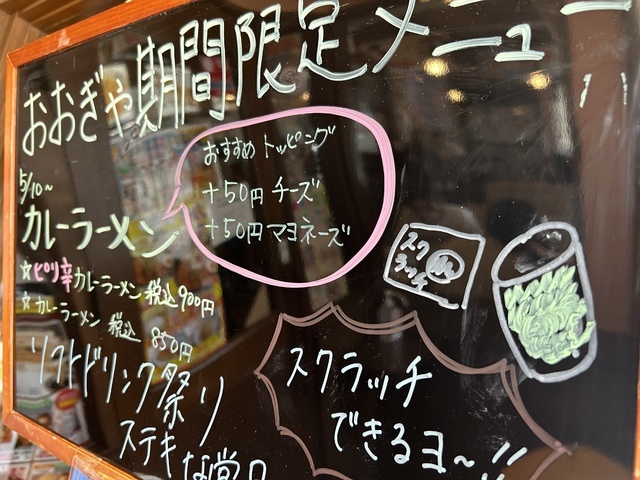 おおぎや期間限定メニュー
おすすめ トッピング
+50円 チーズ
+50円 マヨネーズ
5/10~
カレーラーメン
☆ピリ辛カレーラーメン 税込900円
☆カレーラーメン 税込 850円
スクラッチ
ソフトドリンク祭り
ステキな賞品
スクラッチ
できるヨ~!!